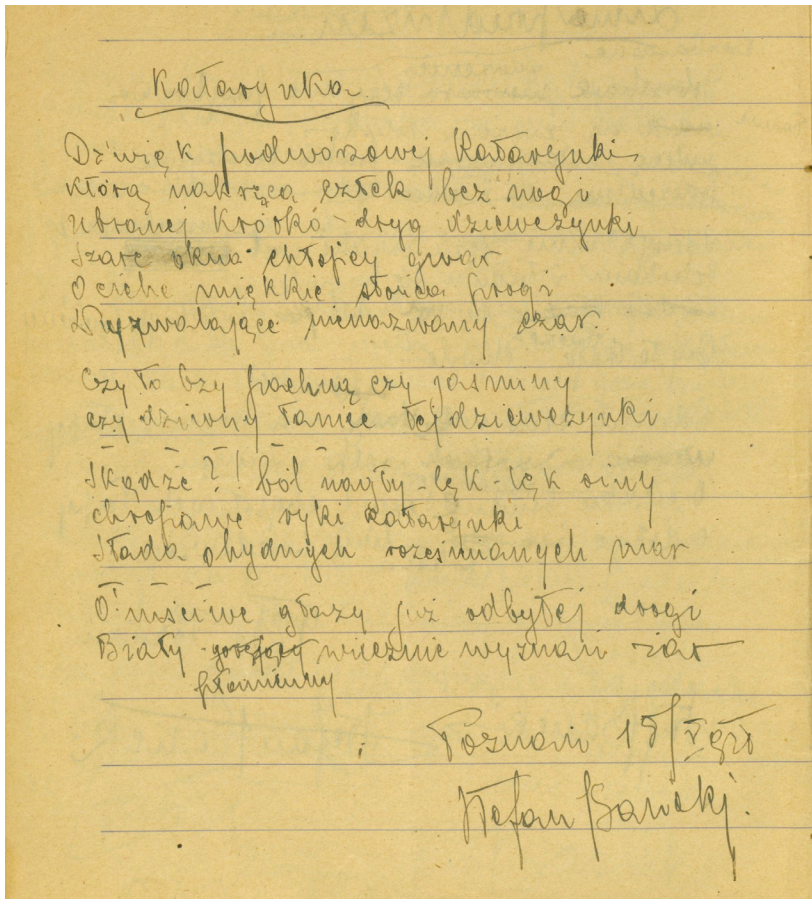 Katarynka
Dźwięk podwórzowej katarynki
którą nakręca człek bez nogi
ubranej krótko - dryg dziewczynki
Szare okna chłopcy gwar
O ciche miękkie słońca progi
Wyzwalające nienazwany czar.
Czy to bzy pachną czy jaśminy
czy dziwny taniec tej dziewczynki
Skądże?! ból nagły - lęk - lęk siny
chropawe ryki katarynki
Stada ohydnych roześmianych mar
O! mściwe głazy już odbytej drogi
Biały gorejący wiecznie wyznań żar
płomienny
Poznań
Stefan